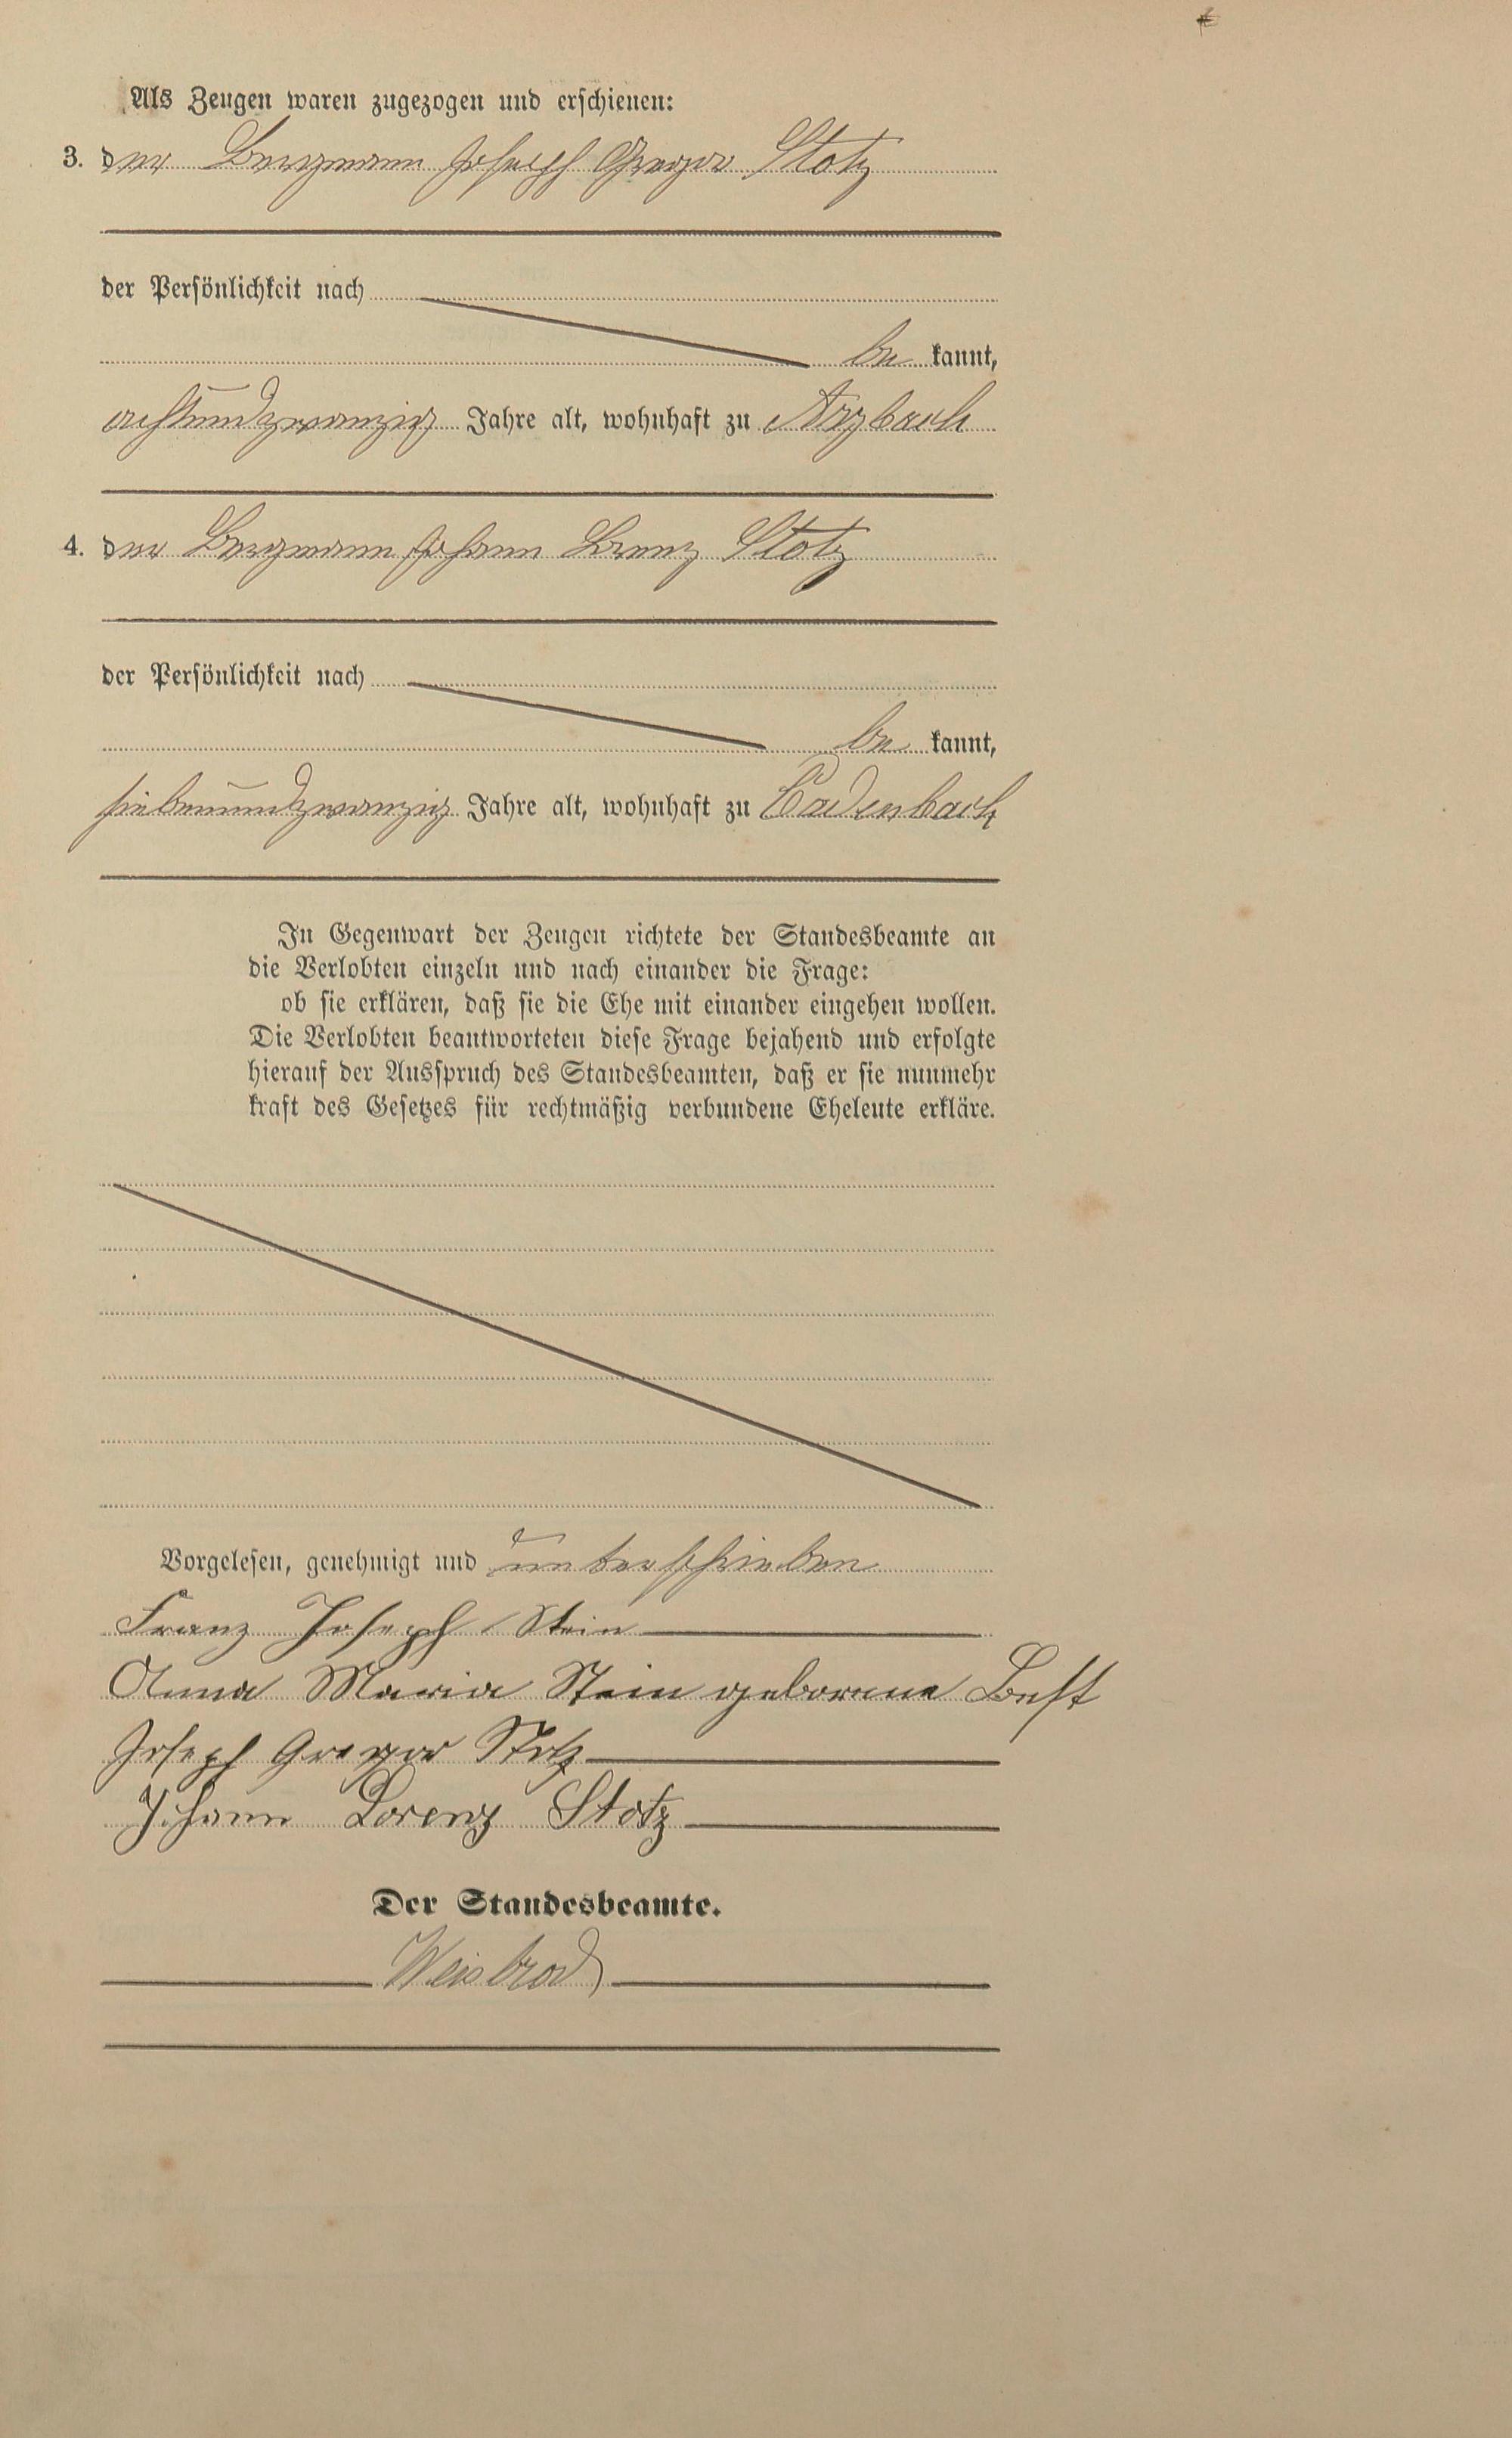 Als Zeugen waren zugezogen und erschienen:
3. der Bergmann Joseph Gregor Stotz
der Persönlichkeit nach
be kannt,
achtundzwanzig Jahre alt, wohnhaft zu Arzbach
4. der Bergmann Johann Lorenz Stotz
der Persönlichkeit nach
be kannt,
siebenundzwanzig Jahre alt, wohnhaft zu Cadenbach
In Gegenwart der Zeugen richtete der Standesbeamte an
die Verlobten einzeln und nach einander die Frage:
ob sie erklären, daß sie die Ehe mit einander eingehen wollen.
Die Verlobten beantworteten diese Frage bejahend und erfolgte
hierauf der Ausspruch des Standesbeamten, daß er sie nunmehr
kraft des Gesetzes für rechtmäßig verbundene Eheleute erkläre.
Vorgelesen, genehmigt und unterschrieben
Franz Joseph Stein
Anna Maria Stein geborene
Joseph Gregor Stotz
Johann Lorenz Stotz
Der Standesbeamte.
Weisbrod